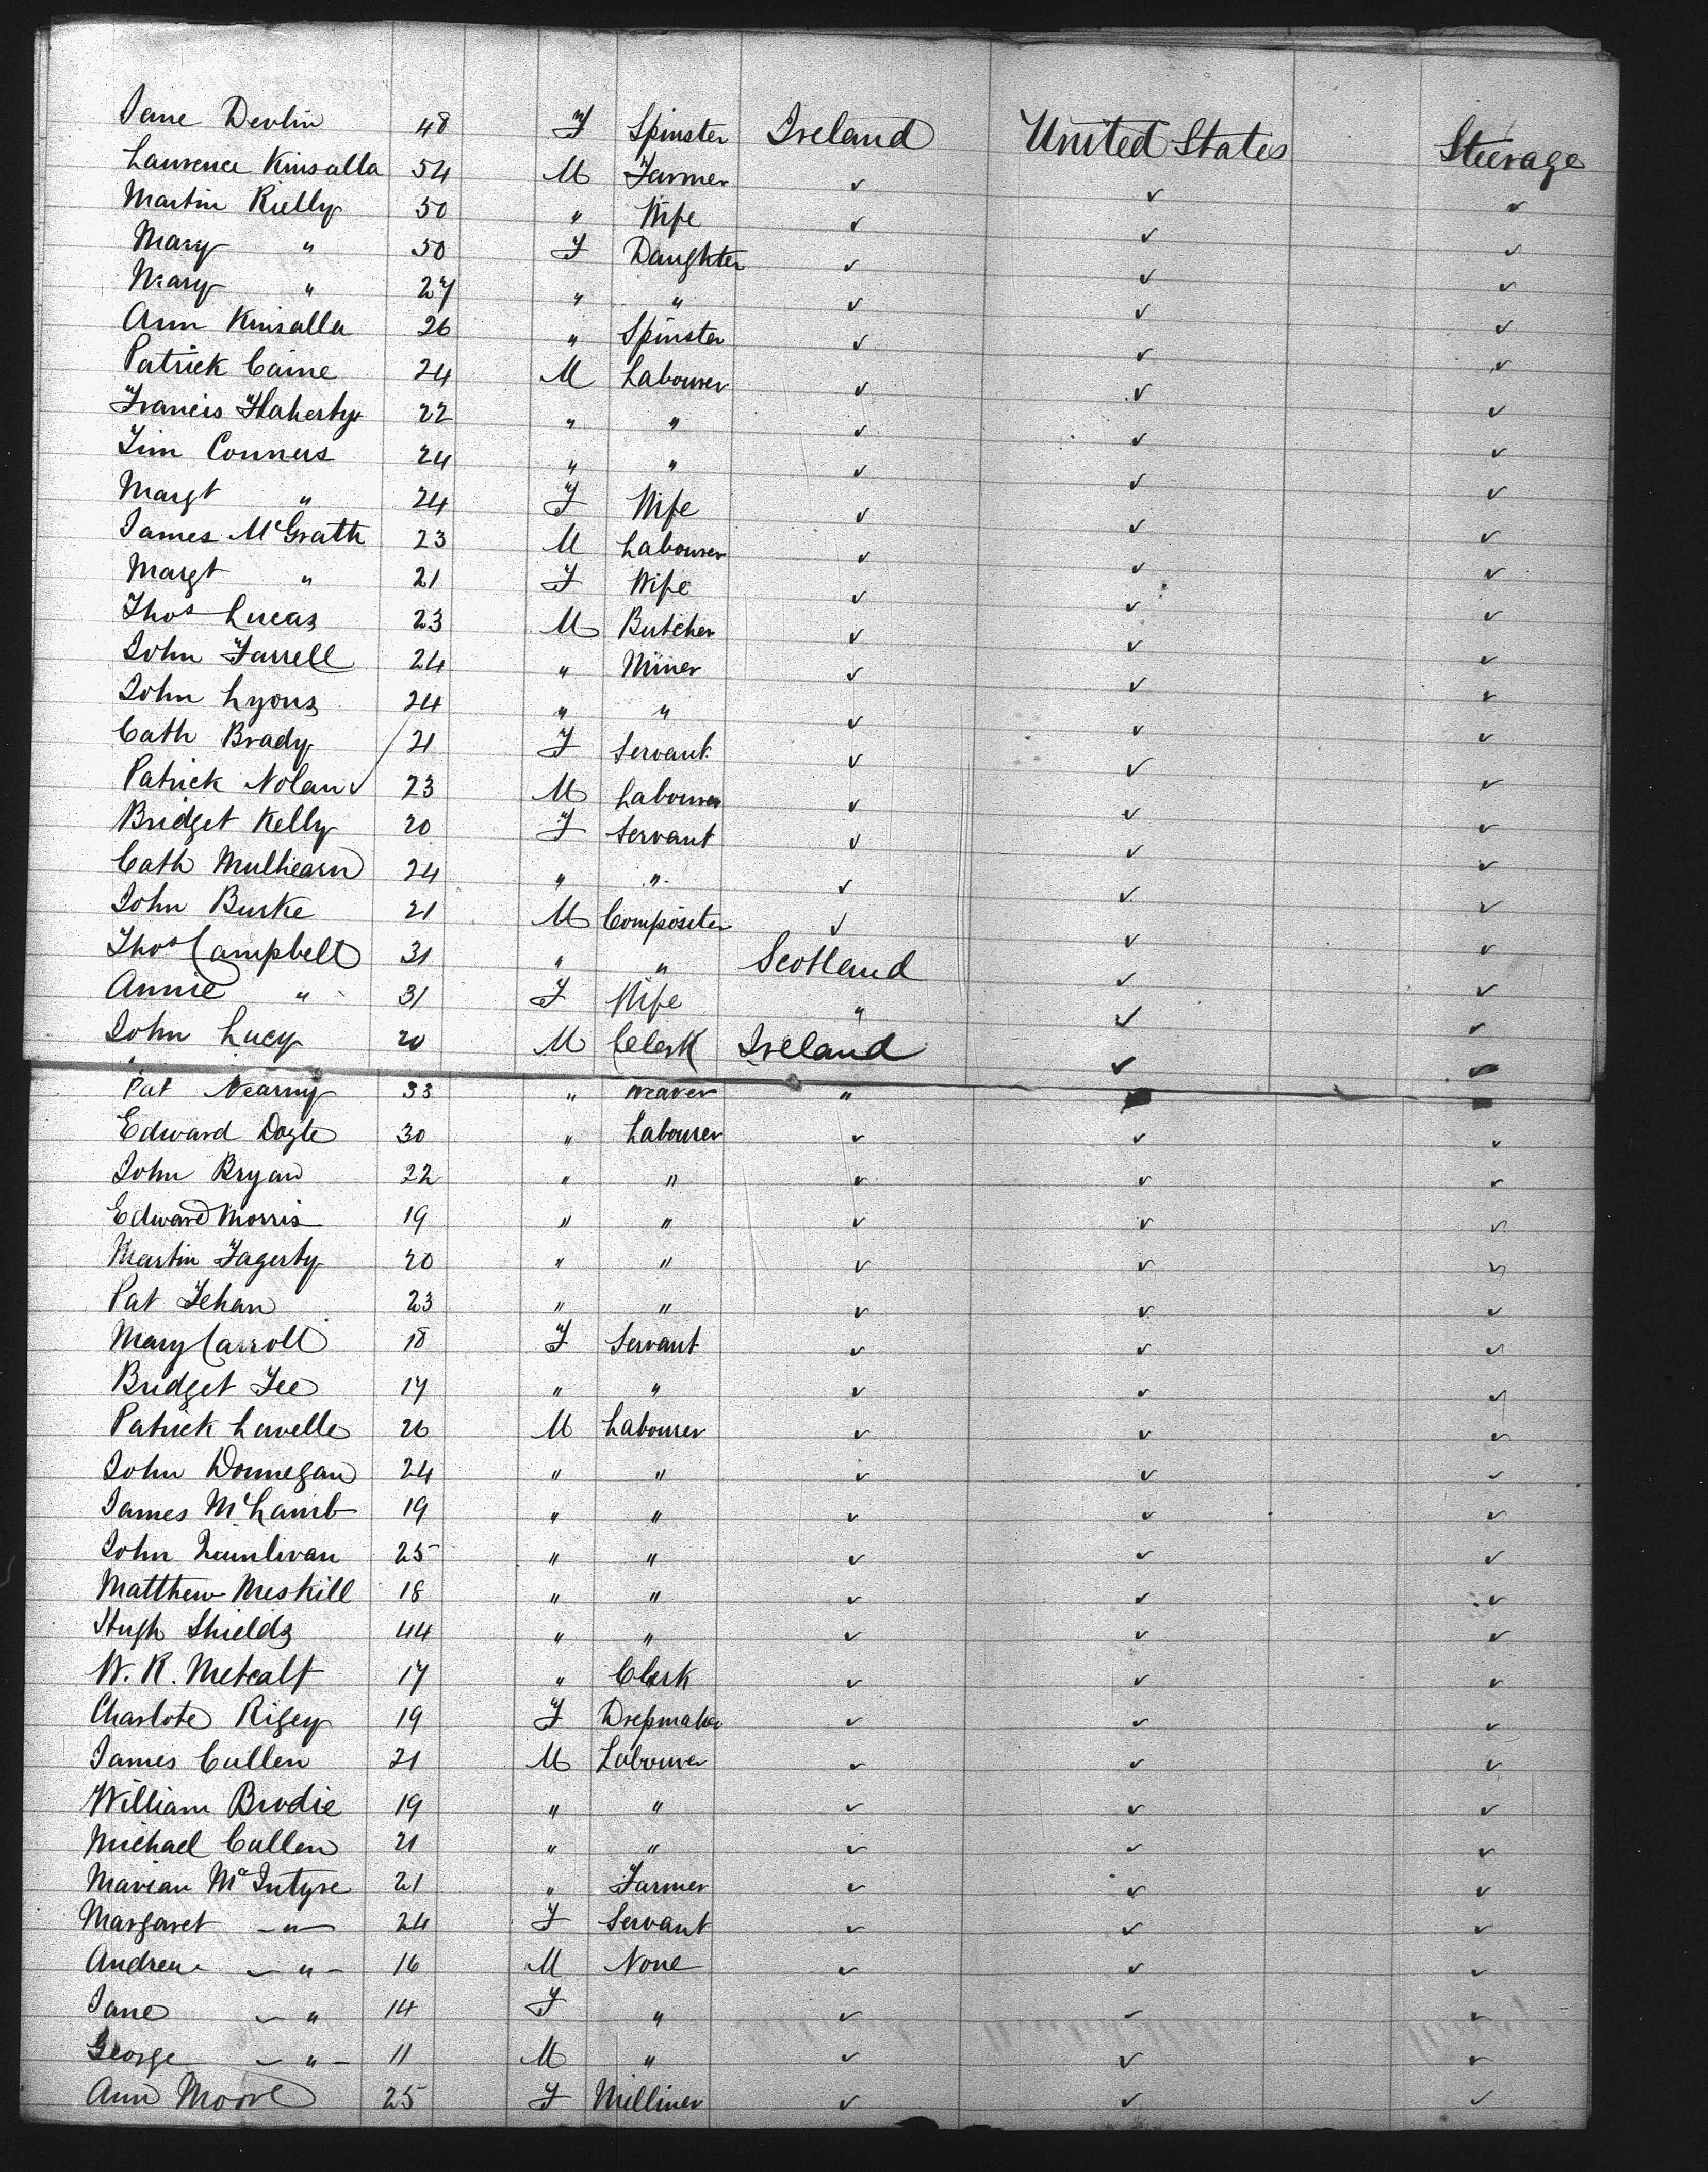 Jane Devlin 48 F Spinster Ireland United States Steerage
Laurence Kinsalla 54 M Farmer ✓ ✓ ✓
Martin Rielly 50 " Wife ✓ ✓ ✓
Mary " 50 F Daughter ✓ ✓ ✓
Mary " 27 " " ✓ ✓ ✓
Ann Kinsalla 26 " Spinster ✓ ✓ ✓
Patrick Caine 24 M Labourer ✓ ✓ ✓
Francis Flaherty 22 " " ✓ ✓ ✓
Tim Conners 24 " " ✓ ✓ ✓
Margt " 24 F Wife ✓ ✓ ✓
James McGrath 23 M Labourer ✓ ✓ ✓
Margt " 21 F Wife ✓ ✓ ✓
Thos Lucas 23 M Butcher ✓ ✓ ✓
John Farrell 24 " Miner ✓ ✓ ✓
John Lyons 24 " " ✓ ✓ ✓
Cath Brady 21 F Servant ✓ ✓ ✓
Patrick Nolan 23 M Labourer ✓ ✓ ✓
Bridget Kelly 20 F Servant ✓ ✓ ✓
Cath Mulhearn 24 " " ✓ ✓ ✓
John Burke 21 M Compositer ✓ ✓ ✓
Thos Campbell 31 " " Scotland ✓ ✓
Annie " 31 F Wife " ✓ ✓
John Lucy 20 M Clerk Ireland ✓ ✓
Pat Nearny 33 " Weaver "
Edward Doyle 30 " Labourer ✓ ✓ ✓
John Bryan 22 " " ✓ ✓ ✓
Edward Morris 19 " " ✓ ✓ ✓
Martin Fagerty 20 " " ✓ ✓ ✓
Pat Fehan 23 " " ✓ ✓ ✓
Mary Carroll 18 F Servant ✓ ✓ ✓
Bridget Fee 17 " " ✓ ✓ ✓
Patrick Lavelle 26 M Labourer ✓ ✓ ✓
John Donnegan 24 " " ✓ ✓ ✓
James McLamb 19 " " ✓ ✓ ✓
John 25 " " ✓ ✓ ✓
Matthew Meskill 18 " " ✓ ✓ ✓
Hugh Shields 44 " " ✓ ✓ ✓
W. R. Metcalf 17 " Clerk ✓ ✓ ✓
Charlote Rigey 19 F Dressmaker ✓ ✓ ✓
James Cullen 21 M Labourer ✓ ✓ ✓
William Brodie 19 " " ✓ ✓ ✓
Michael Cullen 21 " " ✓ ✓ ✓
Marian McIntyre 21 " Farmer ✓ ✓ ✓
Margaret " 24 F Servant ✓ ✓ ✓
Andrew " 16 M None ✓ ✓ ✓
Jane " 14 F " ✓ ✓ ✓
George " 11 M " ✓ ✓ ✓
Ann Moore 25 F Milliner ✓ ✓ ✓